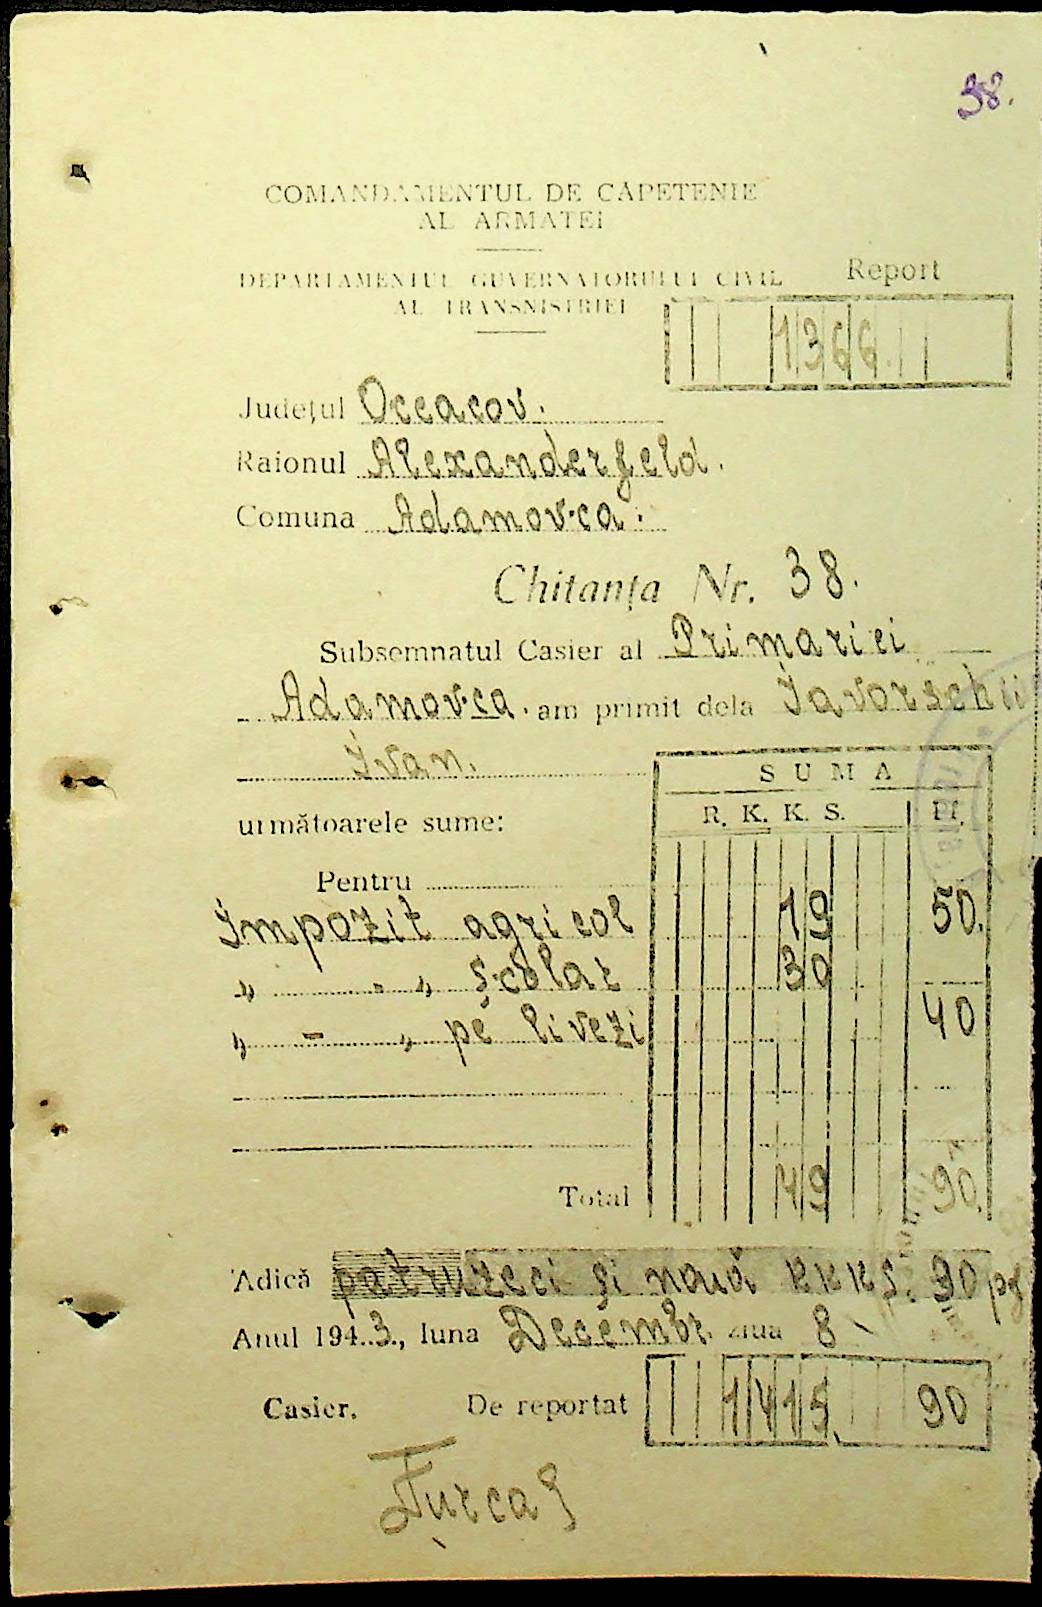 38.
COMANDAMENTUL DE CĂPETENIE
AL ARMATEI
DEPARTAMENTUL GUVERNATORULUI CIVIL
AL TRANSNISTRIEI
Report
1366
Județul Oceacov.
Raionul Alexanderfeld.
Comuna Adamovca.
Chitanța Nr. 38.
Subsemnatul Casier al Primariei
Adamovca. am primit dela Iavorschii
Ivan.
SUMA
R. K. K. S. Pf.
următoarele sume:
Pentru
Impozit agricol 19 50.
„ - „ școlar 30
„ - „ pe livezi 40
Total 49 90.
Adică patruzeci și nouă RKKS. 90 pf
Anul 1943., luna Decembr. ziua 8
Casier, De reportat 1415 90